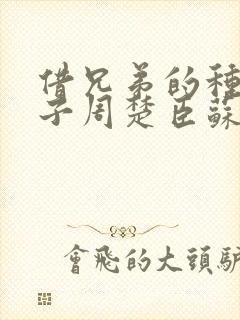 借兄弟的種
子周楚臣蘇
會飛的大頭驢